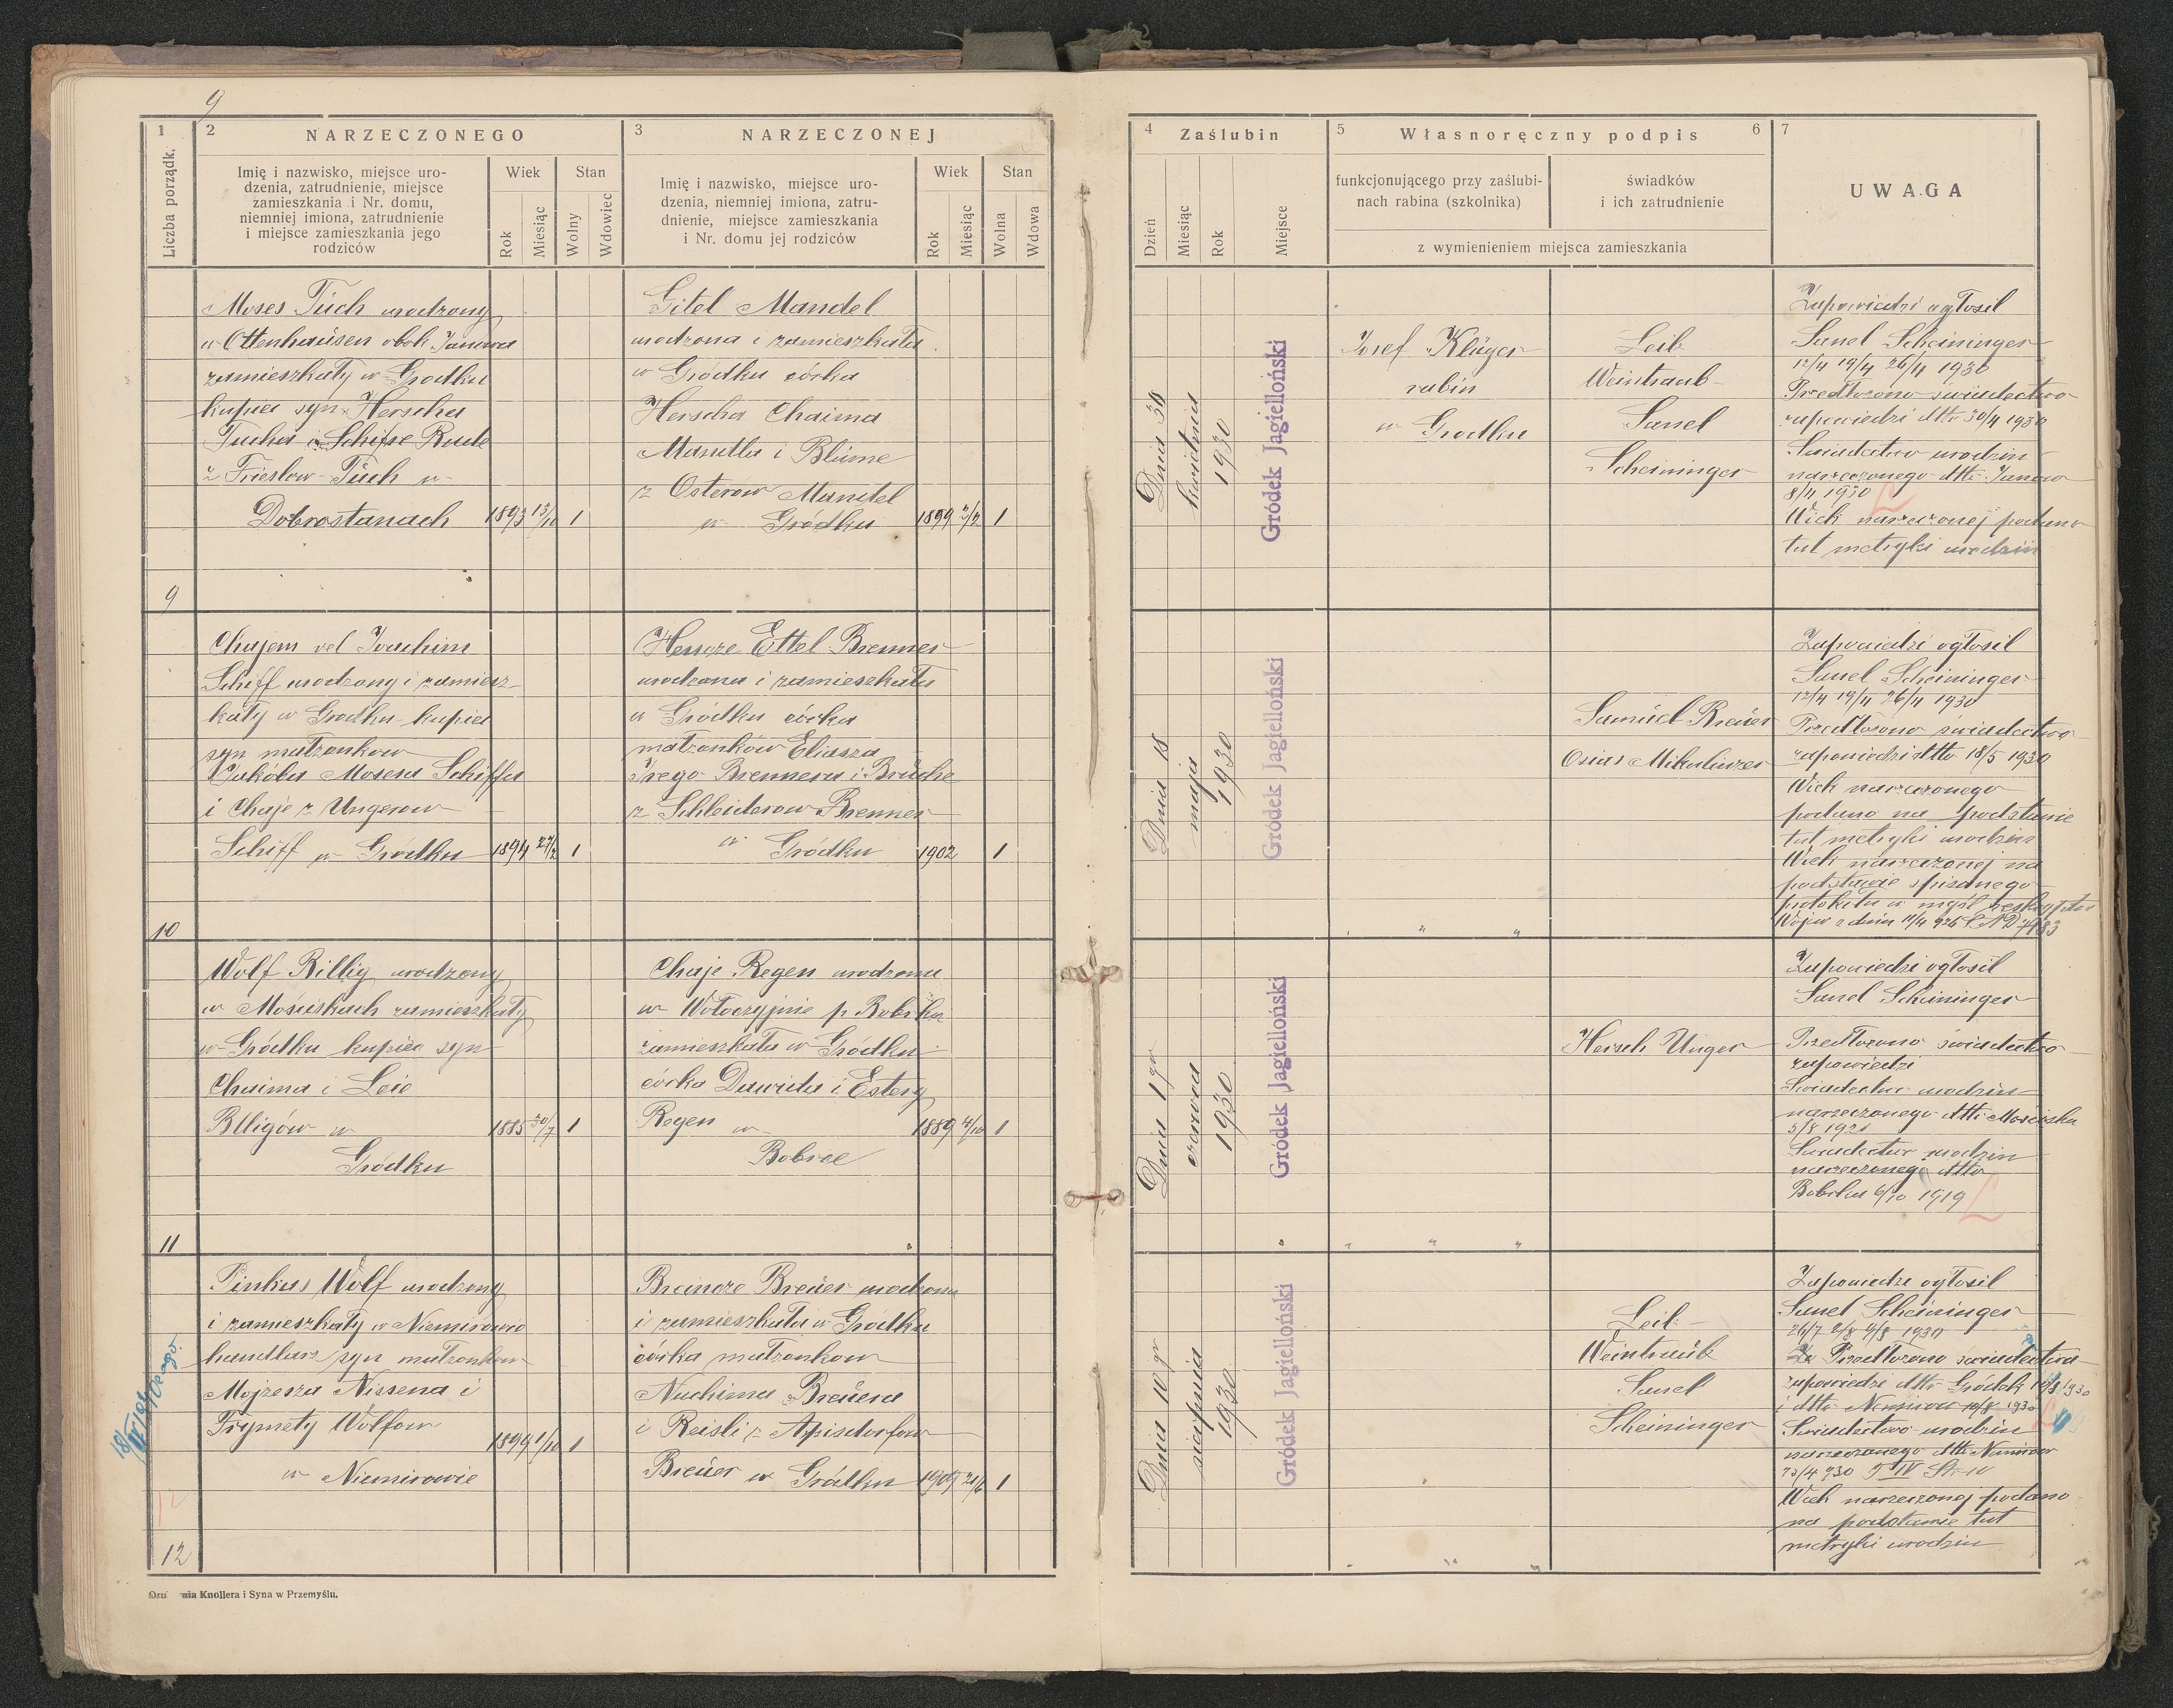 9
1
Liczba porządk.
2
NARZECZONEGO
Imię i nazwisko, miejsce uro-
dzenia, zatrudnienie, miejsce
zamieszkania i Nr. domu,
niemniej imiona, zatrudnienie
i miejsce zamieszkania jego
rodziców
Wiek
Rok
Miesiąc
Stan
Wolny
Wdowiec
3
NARZECZONEJ
Imię i nazwisko, miejsce uro-
dzenia, niemniej imiona, zatru-
dnienie, miejsce zamieszkania
i Nr. domu jej rodziców
Wiek
Rok
Miesiąc
Stan
Wolna
Wdowa
4
Zaślubin
Dzień
Miesiąc
Rok
Miejsce
5
Własnoręczny podpis
6
funkcjonującego przy zaślubi-
nach rabina (szkolnika)
świadków
i ich zatrudnienie
z wymienieniem miejsca zamieszkania
7
UWAGA
9
Moses Tuch urodzony
w Ottenhausen obok Janowa
zamieszkały w Gródku
kupiec syn Herscha
Tucha i Schifre Rude
z Frieslow Tuch w
Dobrostanach
1893 13/10 1
Gitel Mandel
urodzona i zamieszkała
w Gródku córka
Herscha Chaima
Mandla i Blume
z Osterow Mandel
w Gródku
1899 1
Dnia 30
kwietnia
1930
Gródek Jagielloński
Josef Klüger
rabin
w Grodku
Leib
Weintraub
Sanel
Scheininger
Zapowiedzi ogłosił
Sanel Scheininger
12/4 19/4 26/4 1930
Przedłożono świadectwo
zapowiedzi dtto 30/4 1930
Świadectwo urodzin
narzeczonego dtto Janów
8/4 1930
Wiek narzeczonej podano
tut metryki urodzin
10
Chajem vel Joachim
Schiff urodzony i zamiesz-
kały w Grodku kupiec
syn małżonkow
Jakóba Mosesa Schiffa
i Chaje z Ungerow
Schiff w Gródku
1894 27/2 1
Hencze Ettel Brenner
urodzona i zamieszkała
w Gródku córka
małżonków Eliasza
Brennera i Brüche
z Schleiderow Brenner
w Gródku
1902 1
Dnia 18
maja
1930
Gródek Jagielloński
" " "
Samuel Breuer
Osias Mikulinzer
Zapowiedzi ogłosił
Sanel Scheininger
12/4 19/4 26/4 1930
Przedłożono świadectwo
zapowiedzi dtto 18/5 1930
Wiek narzeczonego
podano na podstawie
tut metryki urodzin
Wiek narzeczonej na
podstawie spisanego
protokołu w myśl reskryptu
Wojew z dnia 11/4 926
11
Wolf Billig urodzony
w Mościskach zamieszkały
w Gródku kupiec syn
Chaima i Leie
Blligów w
Gródku
1885 30/7 1
Chaje Regen urodzona
w Wołoczyjnie p Bobrka
zamieszkała w Gródku
córka Dawida i Estery
Regen w
Bobrce
1889 4/10 1
Dnia 1 go
czerwca
1930
Gródek Jagielloński
" " "
Hersch Unger
Zapowiedzi ogłosił
Sanel Scheininger
Przedłożono świadectwo
zapowiedzi
Świadectwo urodzin
narzeczonego dtto Mościska
5/8 1921
Świadectwo urodzin
narzeczonego dtto
Bobrka 6/10 1919
12
Pinkas Wolf urodzony
i zamieszkały w Niemirowie
handlarz syn małżonkow
Mojzesza Nissena i
Frymety Wolfow
w Niemirowie
1899 1/10 1
Brancze Breuer urodzona
i zamieszkała w Gródku
córka małżonkow
Nachima Breuera
i Reisli z Apisdorfow
Breuer w Gródku
1909 21/6 1
Dnia 10 go
sierpnia
1930
Gródek Jagielloński
" " "
Leib
Weintraub
Sanel
Scheininger
Zapowiedzi ogłosił
Sanel Scheininger
26/7 2/8 9/8 1930
Przedłożono świadectwa
zapowiedzi dtto Gródek 10/8 1930
i dtto Niemirow 10/8 1930
Świadectwo urodzin
narzeczonego dtto Niemirow
23/4 930 T IV Str IV
Wiek narzeczonej podano
na podstawie tut
metryki urodzin
nia Knollera i Syna w Przemyślu.